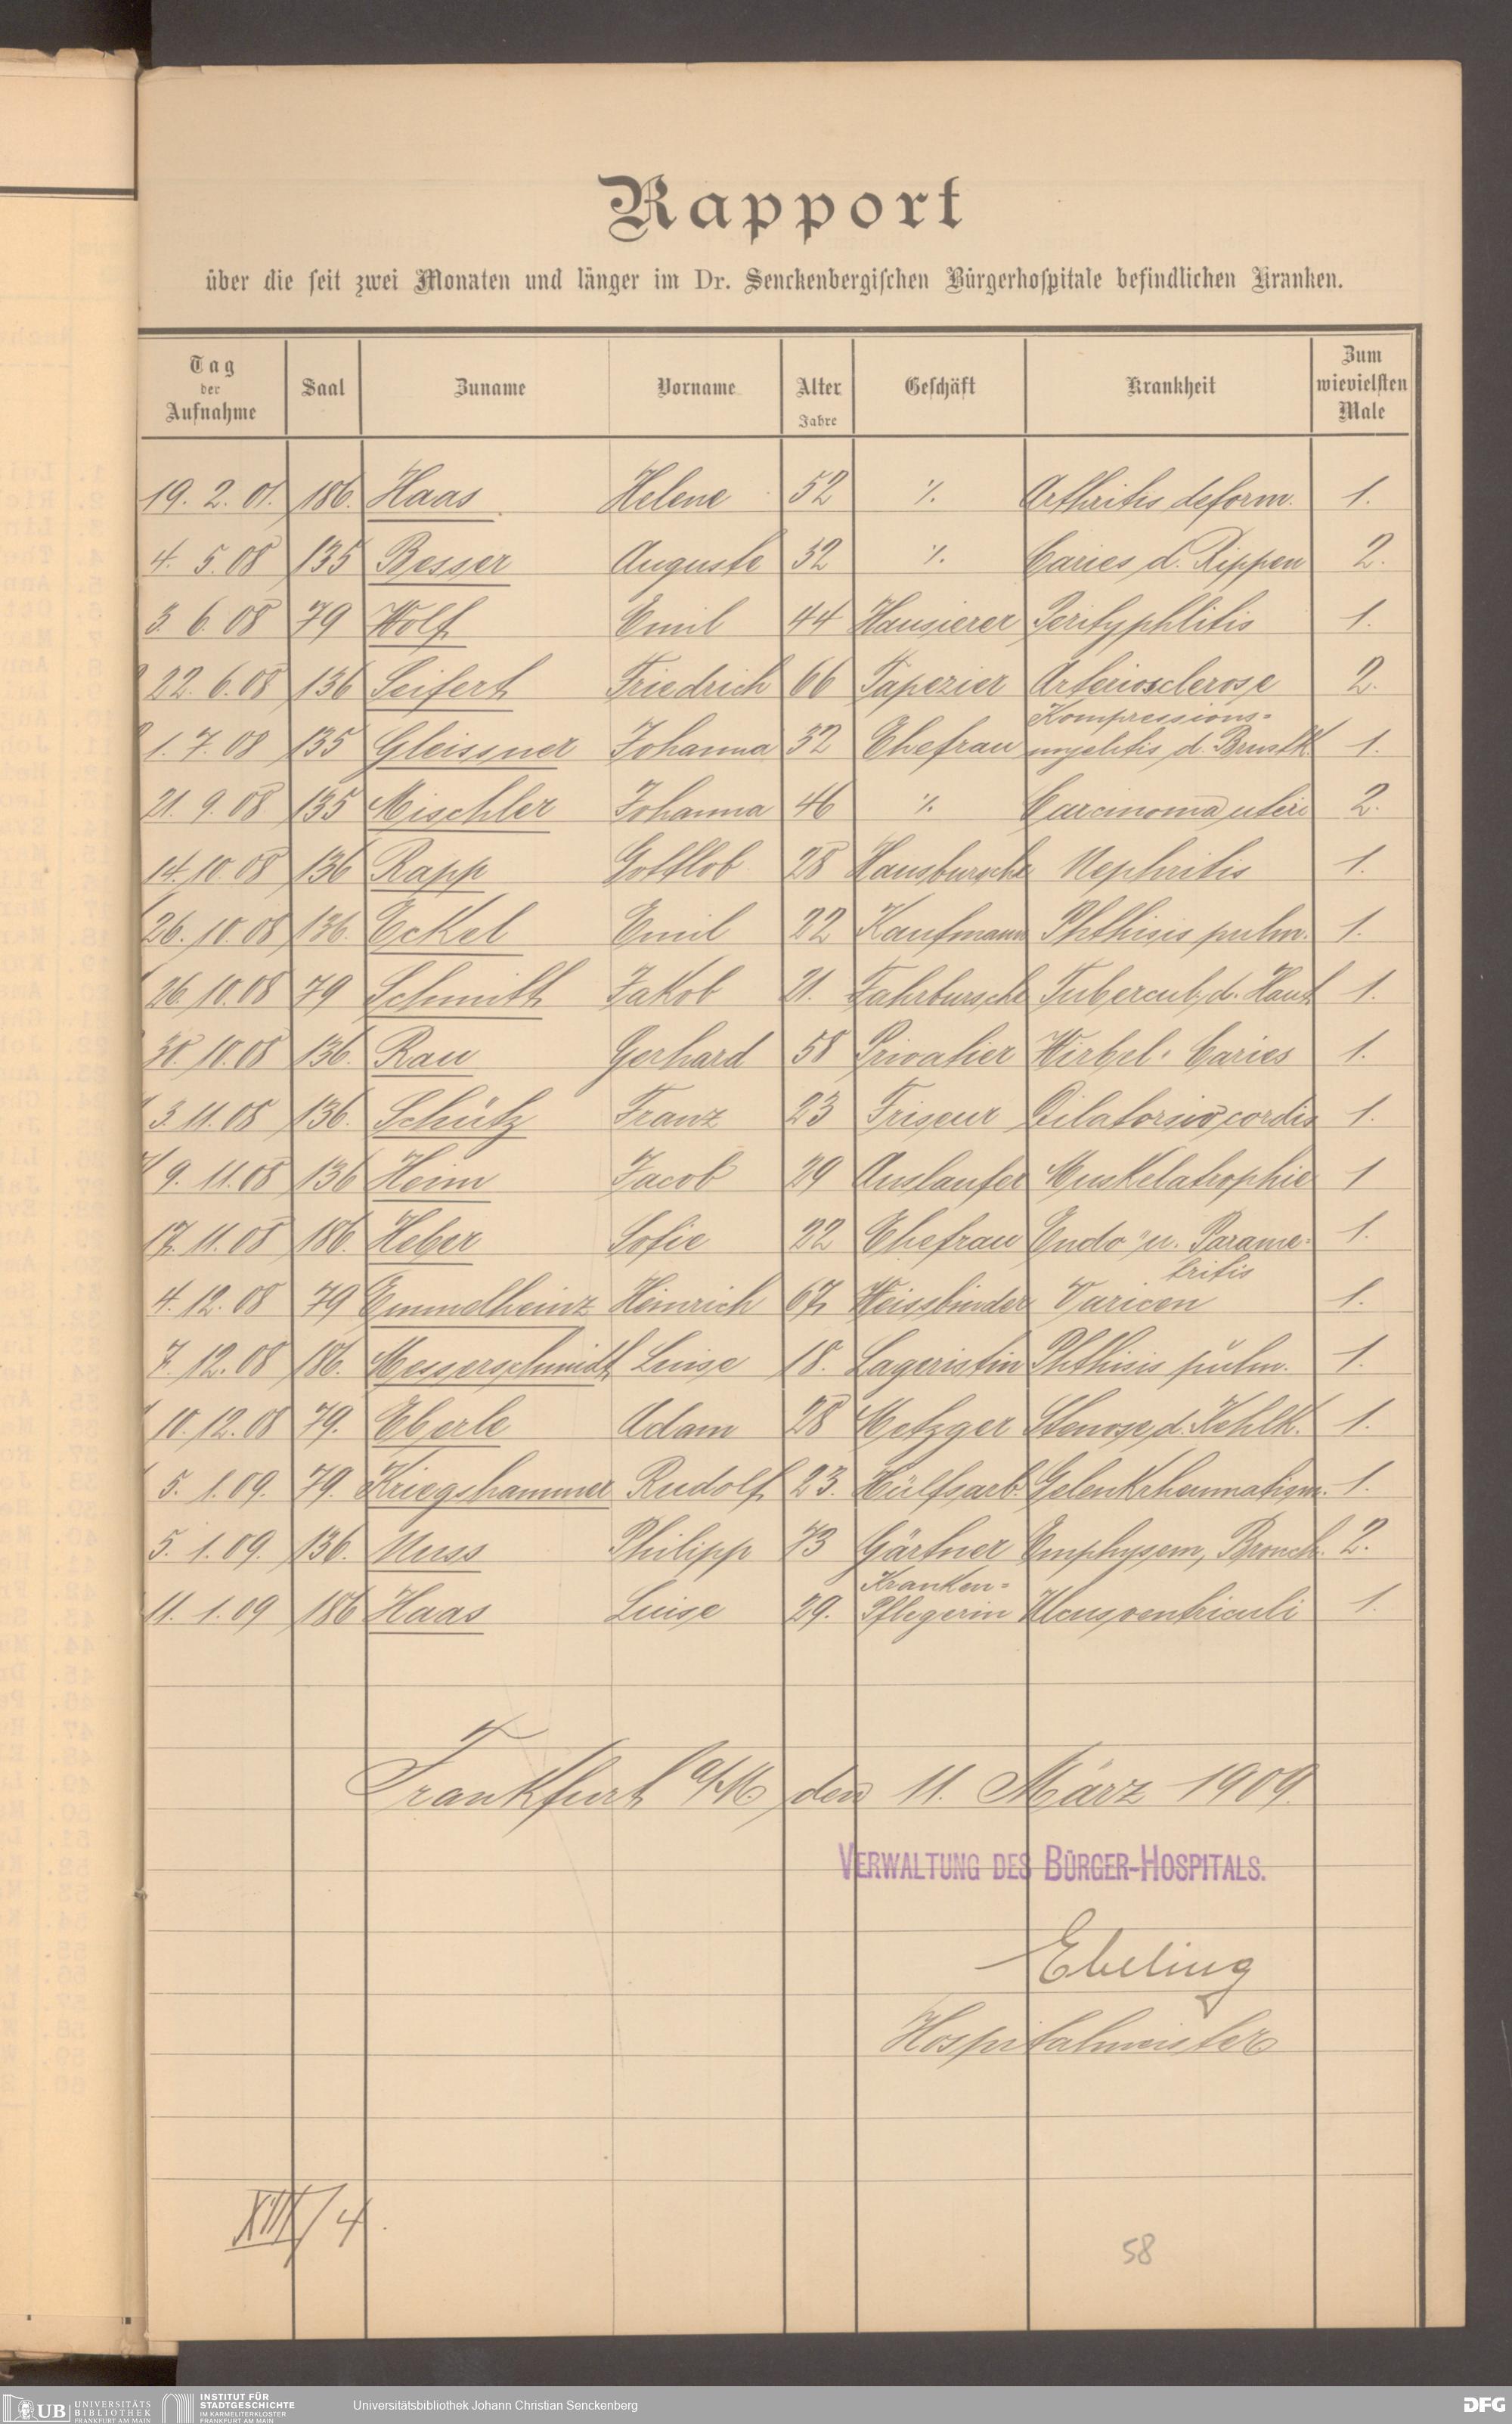 Rapport
über die seit zwei Monaten und länger im Dr. Senckenbergischen Bürgerhospitale befindlichen Kranken.
Tag der Aufnahme Saal Zuname Vorname Alter Jahre Geschäft Krankheit Zum wievielsten Male
19. 2. 01. 186. Haas Helene 52 ⁒ Arthritis deform. 1.
4. 5. 08 135 Besser Auguste 32 ⁒ Caries d. Rippen 2.
3. 6. 08 79 Wolf Emil 44 Hausierer Perityphlitis 1.
22. 6. 08 136 Seifert Friedrich 66 Tapezier Arteriosclerose 2.
Kompressions-
1. 7. 08 135 Gleissner Johanna 32 Ehefrau myelitis d. Brustk. 1.
21. 9. 08 135 Mischler Johanna 46 ⁒ Carcinoma uteri 2.
14. 10. 08 136 Rapp Gottlob 28 Hausbursche Nephritis 1.
26. 10. 08 136. Eckel Emil 22 Kaufmann Phthisis pulm. 1.
26. 10. 08 79 Schmitt Jakob 21. Fahrbursche Tubercul. d. Haut 1.
10. 08 136. Rau Gerhard 58 Privatier Wirbel-Caries 1.
3. 11. 08 136. Schütz Franz 23 Friseur cordis 1.
9. 11. 08 136 Heim Jacob 29 Auslaufer Muskelatrophie 1
17. 11. 08 186. Heber Sofie 22 Ehefrau Endo- u. Parame- 1.
tritis
4. 12. 08 79 Emmelheinz Heinrich 67 Weissbinder Varicen 1.
7. 12. 08 186. Messerschmidt Luise 18. Lageristin Phthisis pulm. 1.
10. 12. 08 79. Eberle Adam 28 Metzger Stenose d. Kehlk. 1.
5. 1. 09. 79. Kriegshammer Rudolf 23. Hülfsarb. Gelenkrheumatism. 1.
5. 1. 09. 136. Nuss Philipp 73 Gärtner Emphysem, Bronch. 2.
Kranken-
11. 1. 09 186 Haas Luise 29. Pflegerin Ulcus ventriculi 1.
Frankfurt a/M. den 11. März 1909.
VERWALTUNG DES BÜRGER-HOSPITALS.
Ebeling
Hospitalmeister
XIII/4.
58
UB UNIVERSITÄTS BIBLIOTHEK FRANKFURT AM MAIN
INSTITUT FÜR STADTGESCHICHTE IM KARMELITERKLOSTER FRANKFURT AM MAIN
Universitätsbibliothek Johann Christian Senckenberg
DFG